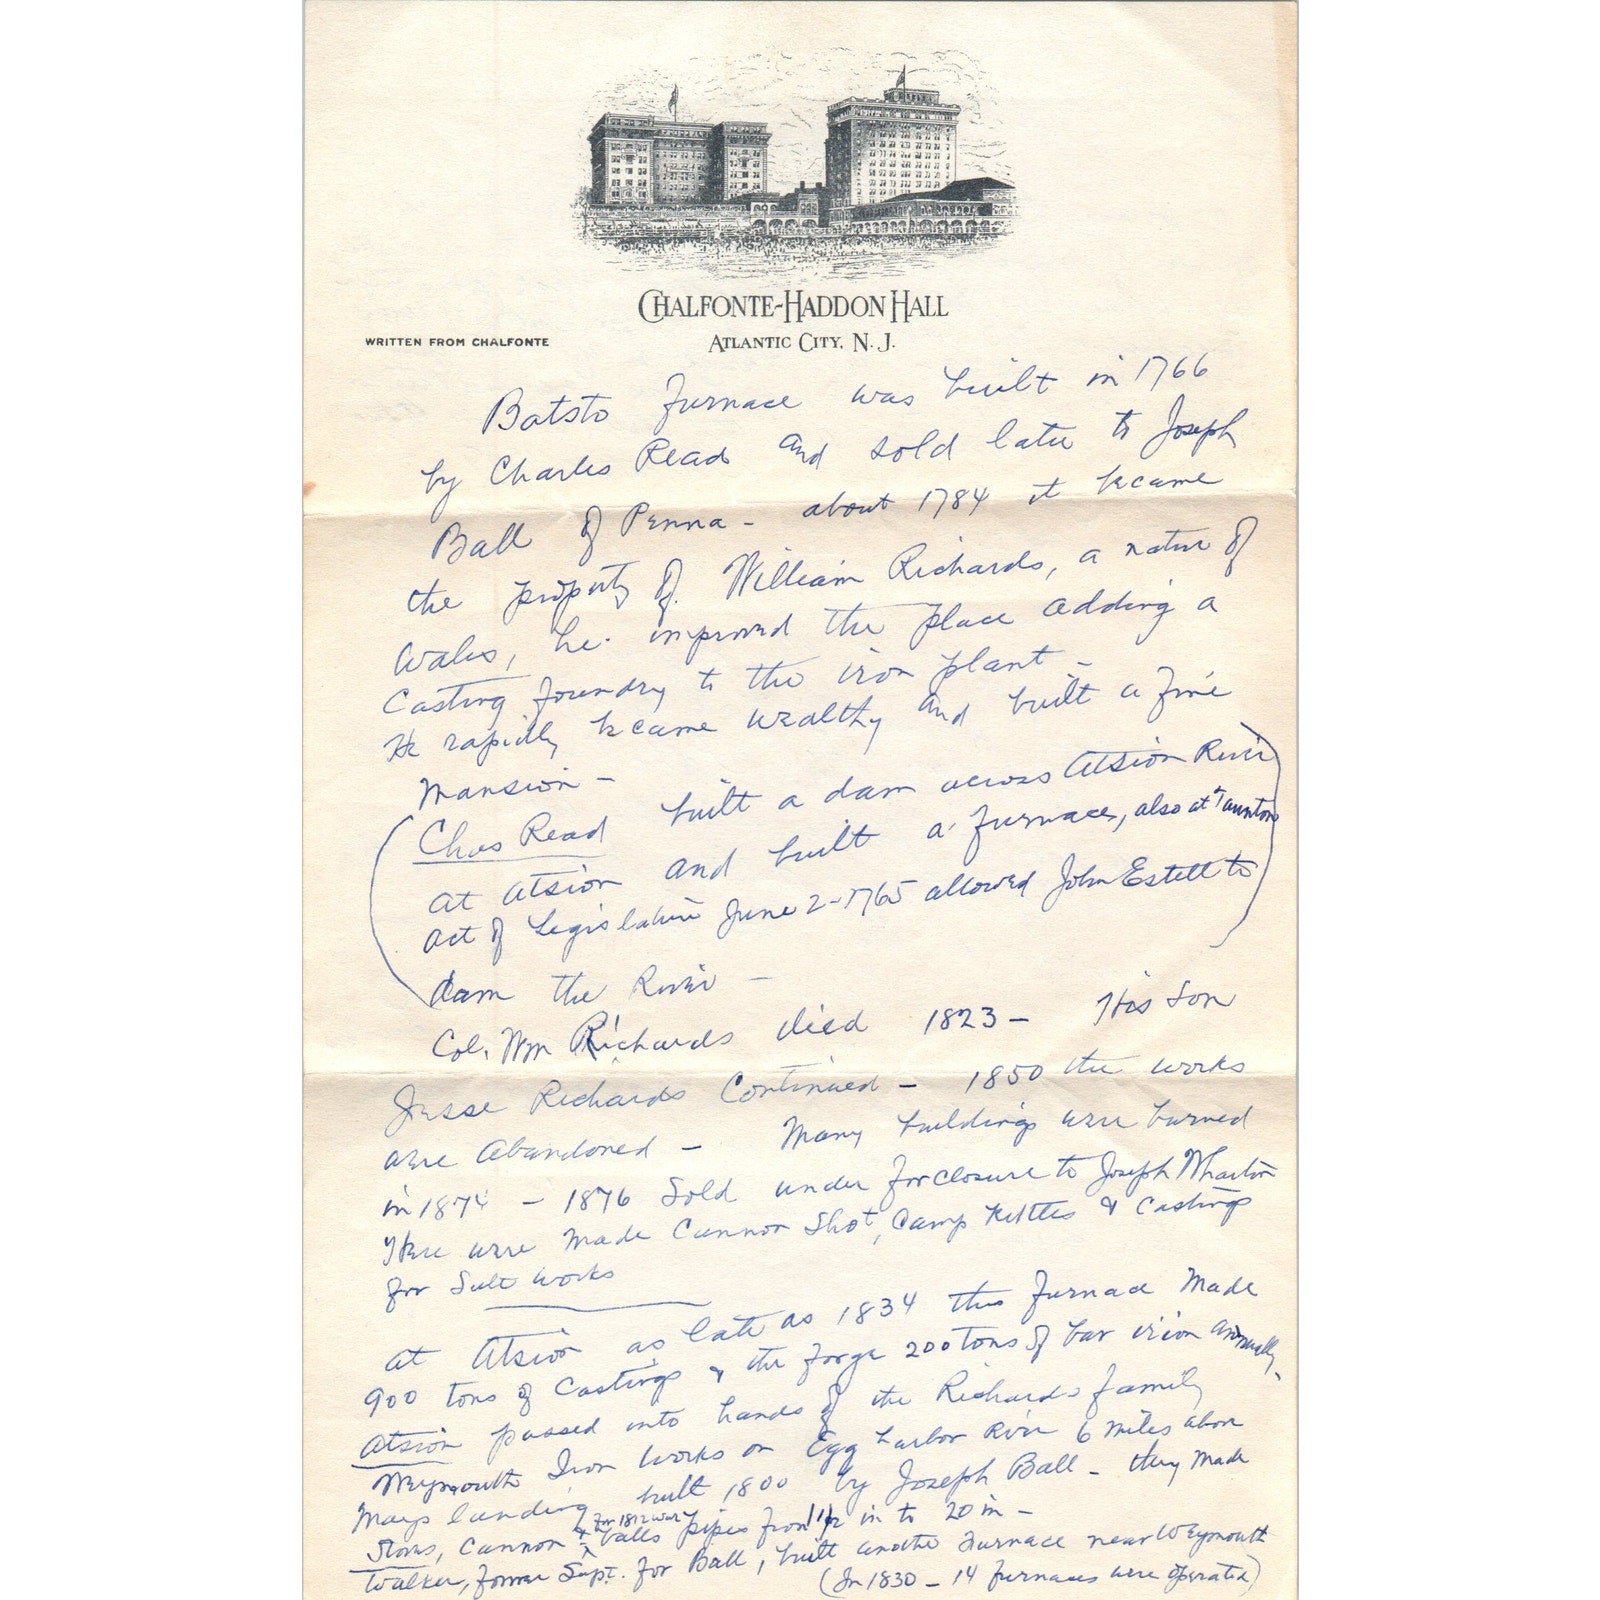 CHALFONTE-HADDON HALL
ATLANTIC CITY, N. J.
WRITTEN FROM CHALFONTE
Batsto Furnace was built in 1766
by Charles Read and sold later to Joseph
Ball of Penna - about 1784 it became
the property of William Richards, a native of
Wales, he improved the place adding a
Casting foundry to the iron plant -
He rapidly became wealthy and built a fine
Mansion -
(Chas Read built a dam across Atsion River
at Atsion and built a furnace, also at Taunton
Act of Legislature June 2-1765 allowed John Estell to
dam the River - )
Col. Wm Richards died 1823 - His Son
Jesse Richards Continued - 1850 the works
were Abandoned - Many buildings were burned
in 1874 - 1876 Sold under forclosure to Joseph Wharton
Here were Made Cannon Shot, Camp Kettles & Castings
for Salt works
at Atsion as late as 1834 this Furnace Made
900 tons of Castings & the forge 200 tons of bar iron annually.
Atsion passed into hands of the Richards family
Weymouth Iron Works on Egg harbor River 6 miles above
Mays landing built 1800 by Joseph Ball - they Made
Stoves, Cannon & balls for 1812 war pipes from 1 1/2 in to 20 in -
Walker, former Supt. for Ball, built another Furnace near Weymouth
(In 1830 - 14 furnaces were operated)